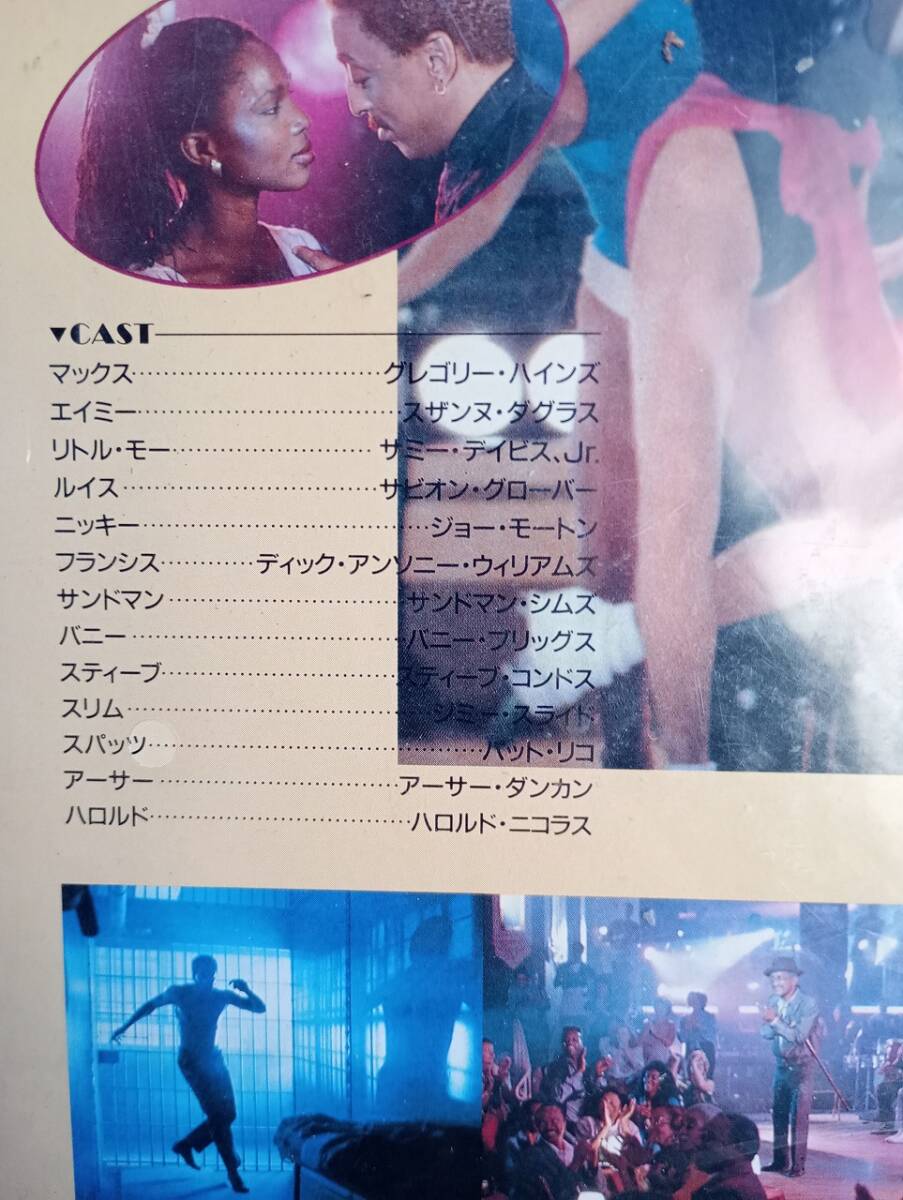 ▼CAST
マックス……………………………グレゴリー・ハインズ
エイミー……………………………スザンヌ・ダグラス
リトル・モー………………………サミー・デイビス、Jr.
ルイス………………………………サビオン・グローバー
ニッキー……………………………ジョー・モートン
フランシス…………ディック・アンソニー・ウィリアムズ
サンドマン…………………………サンドマン・シムズ
バニー………………………………バニー・ブリッグス
スティーブ…………………………スティーブ・コンドス
スリム………………………………ジミー・スライド
スパッツ……………………………パット・リコ
アーサー……………………………アーサー・ダンカン
ハロルド……………………………ハロルド・ニコラス